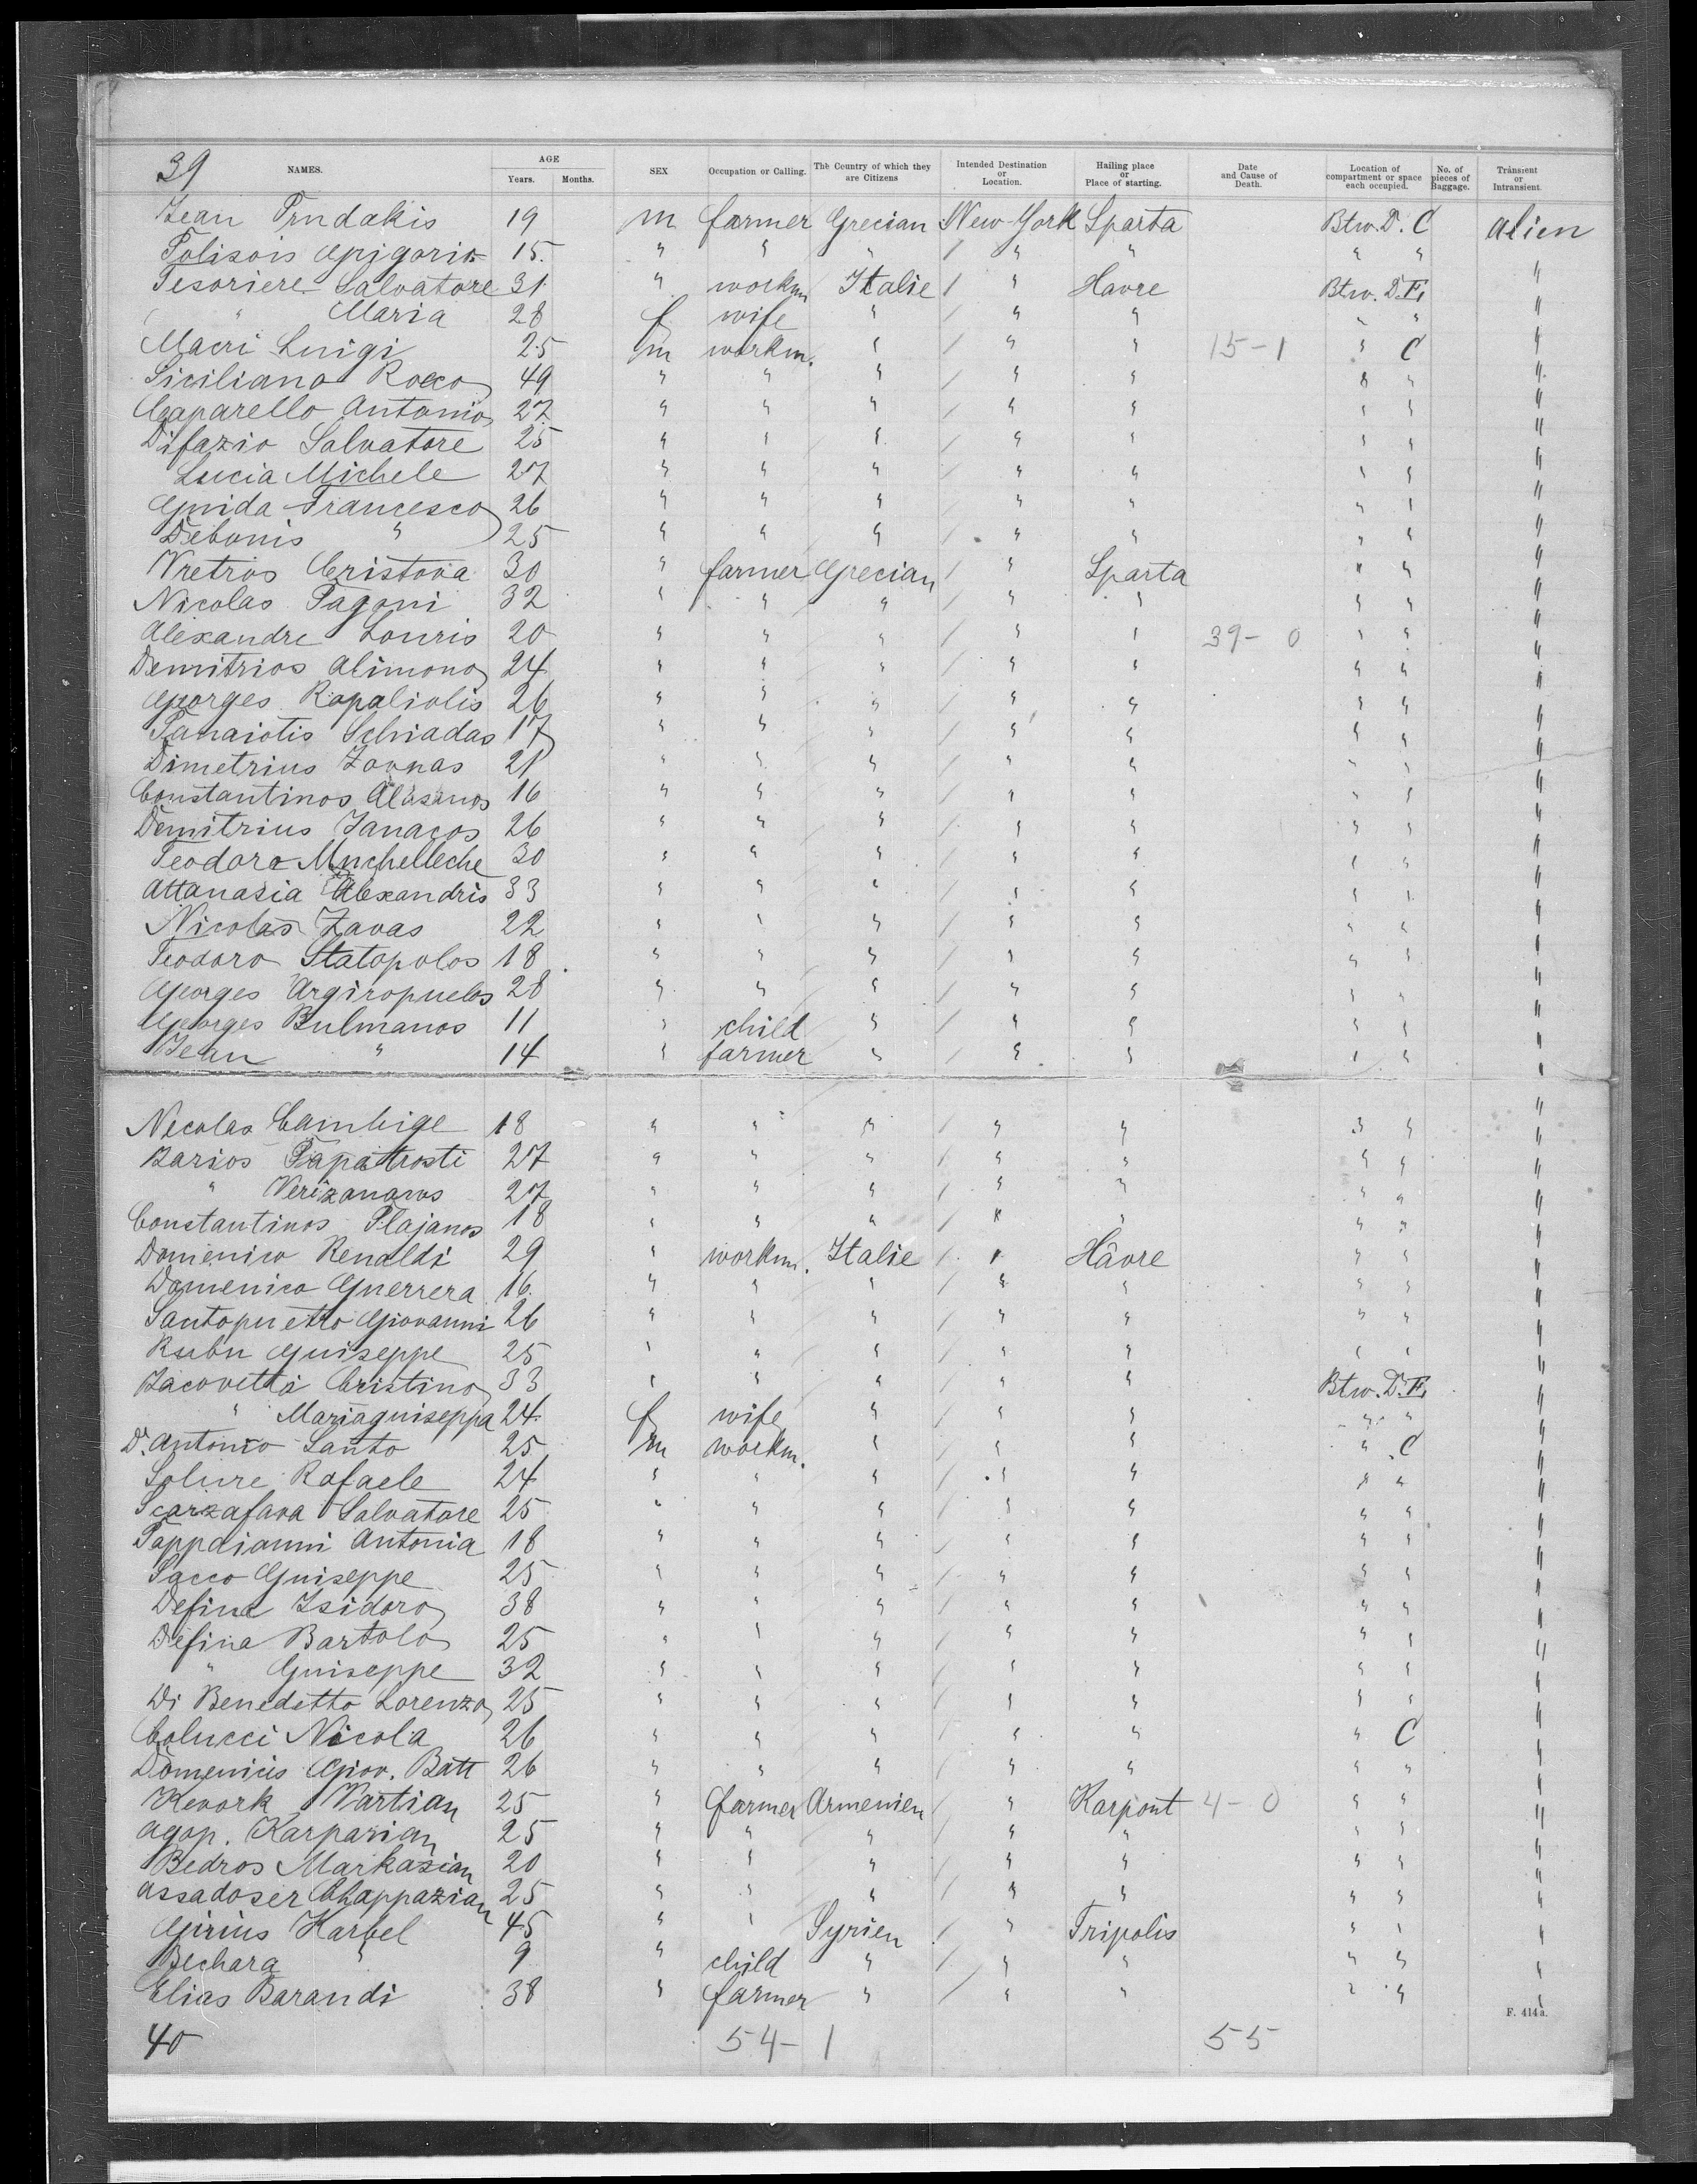 39 NAMES. AGE Years. Months. SEX Occupation or Calling. The Country of which they are Citizens Intended Destination or Location. Hailing place or Place of starting. Date and Cause of Death. Location of compartment or space each occupied. No. of pieces of Baggage. Transient or Intransient.
Jean Trudakis 19 m farmer Grecian New-York Sparta Btw. D. C alien
Polisois Grigoris 15. " " " / " " " " "
Tesoriere Salvatore 31 " workm Italie / " Havre Btw. D. E. "
" Maria 28 f wife " / " " " " "
Macri Luigi 25 m workm. " / " " 15-1 " C "
Siciliano Rocco 49 " " " / " " " " "
Caparello Antonio 27. " " " / " " " " "
Difazio Salvatore 25 " " " / " " " " "
Lucia Michele 27 " " " / " " " " "
Guida Francesco 26 " " " / " " " " "
Debonis " 25 " " " / " " " " "
Vretros Cristova 30 " farmer Grecian / " Sparta " " "
Nicolas Pagoni 32 " " " / " " " " "
Alexandre Louris 20 " " " / " " 39- 0 " " "
Demitrios Alimono 24 " " " / " " " " "
Georges Rapaliolis 26 " " " / " " " " "
Panaiotis Schiadas 17 " " " / " " " " "
Dimetrius Zovnas 21 " " " / " " " " "
Constantinos Alasanos 16 " " " / " " " " "
Demitrius Janacos 26 " " " / " " " " "
Teodoro Muchelleche 30 " " " / " " " " "
Attanasia Alexandris 33 " " " / " " " " "
Nicolas Zavas 22 " " " / " " " " "
Teodoro Statopolos 18 " " " / " " " " "
Georges Argiropuelos 28 " " " / " " " " "
Georges Bulmanos 11 " child " / " " " " "
Jean " 14 " farmer " / " " " " "
Necolas Cambige 18 " " " / " " " " "
Barios Papatrosti 27 " " " / " " " " "
" Verizanaros 27 " " " / " " " " "
Constantinos Plajanos 18 " " " / " " " " "
Domenico Renaldi 29 " workm. Italie / " Hâvre " " "
Domenico Guerrera 16. " " " / " " " " "
Santopuetro Giovanni 26 " " " / " " " " "
Rubu Guiseppe 25 " " " / " " " " "
Jacovetta Cristino 33 " " " / " " Btw. D. E. "
" Mariaguiseppa 24. f wife " / " " " " "
D'Antonio Santo 25 m workm. " / " " " C "
Solure Rafaele 24 " " " / " " " " "
Scarzafava Salvatore 25 " " " / " " " " "
Pappaianni Antonia 18 " " " / " " " " "
Sacco Guiseppe 25 " " " / " " " " "
Defina Isidoro 38 " " " / " " " " "
Defina Bartolo 25 " " " / " " " " "
" Guiseppe 32 " " " / " " " " "
Di Benedetto Lorenzo 25 " " " / " " " " "
Colucci Nicola 26 " " " / " " " C "
Domenicis Giov. Batt 26 " " " / " " " " "
Kevork Vartian 25 " farmer Armenien / " Karpont 4- 0 " " "
Agop. Karparian 25 " " " / " " " " "
Bedros Markasian 20 " " " / " " " " "
Assadoser Chappazian 25 " " " / " " " " "
Girius Karbel 45 " " Syrien / " Tripolis " " "
Bechara " 9 " child " / " " " " "
Elias Barandi 38 " farmer " / " " " " "
F. 414a.
40 54- 1 55